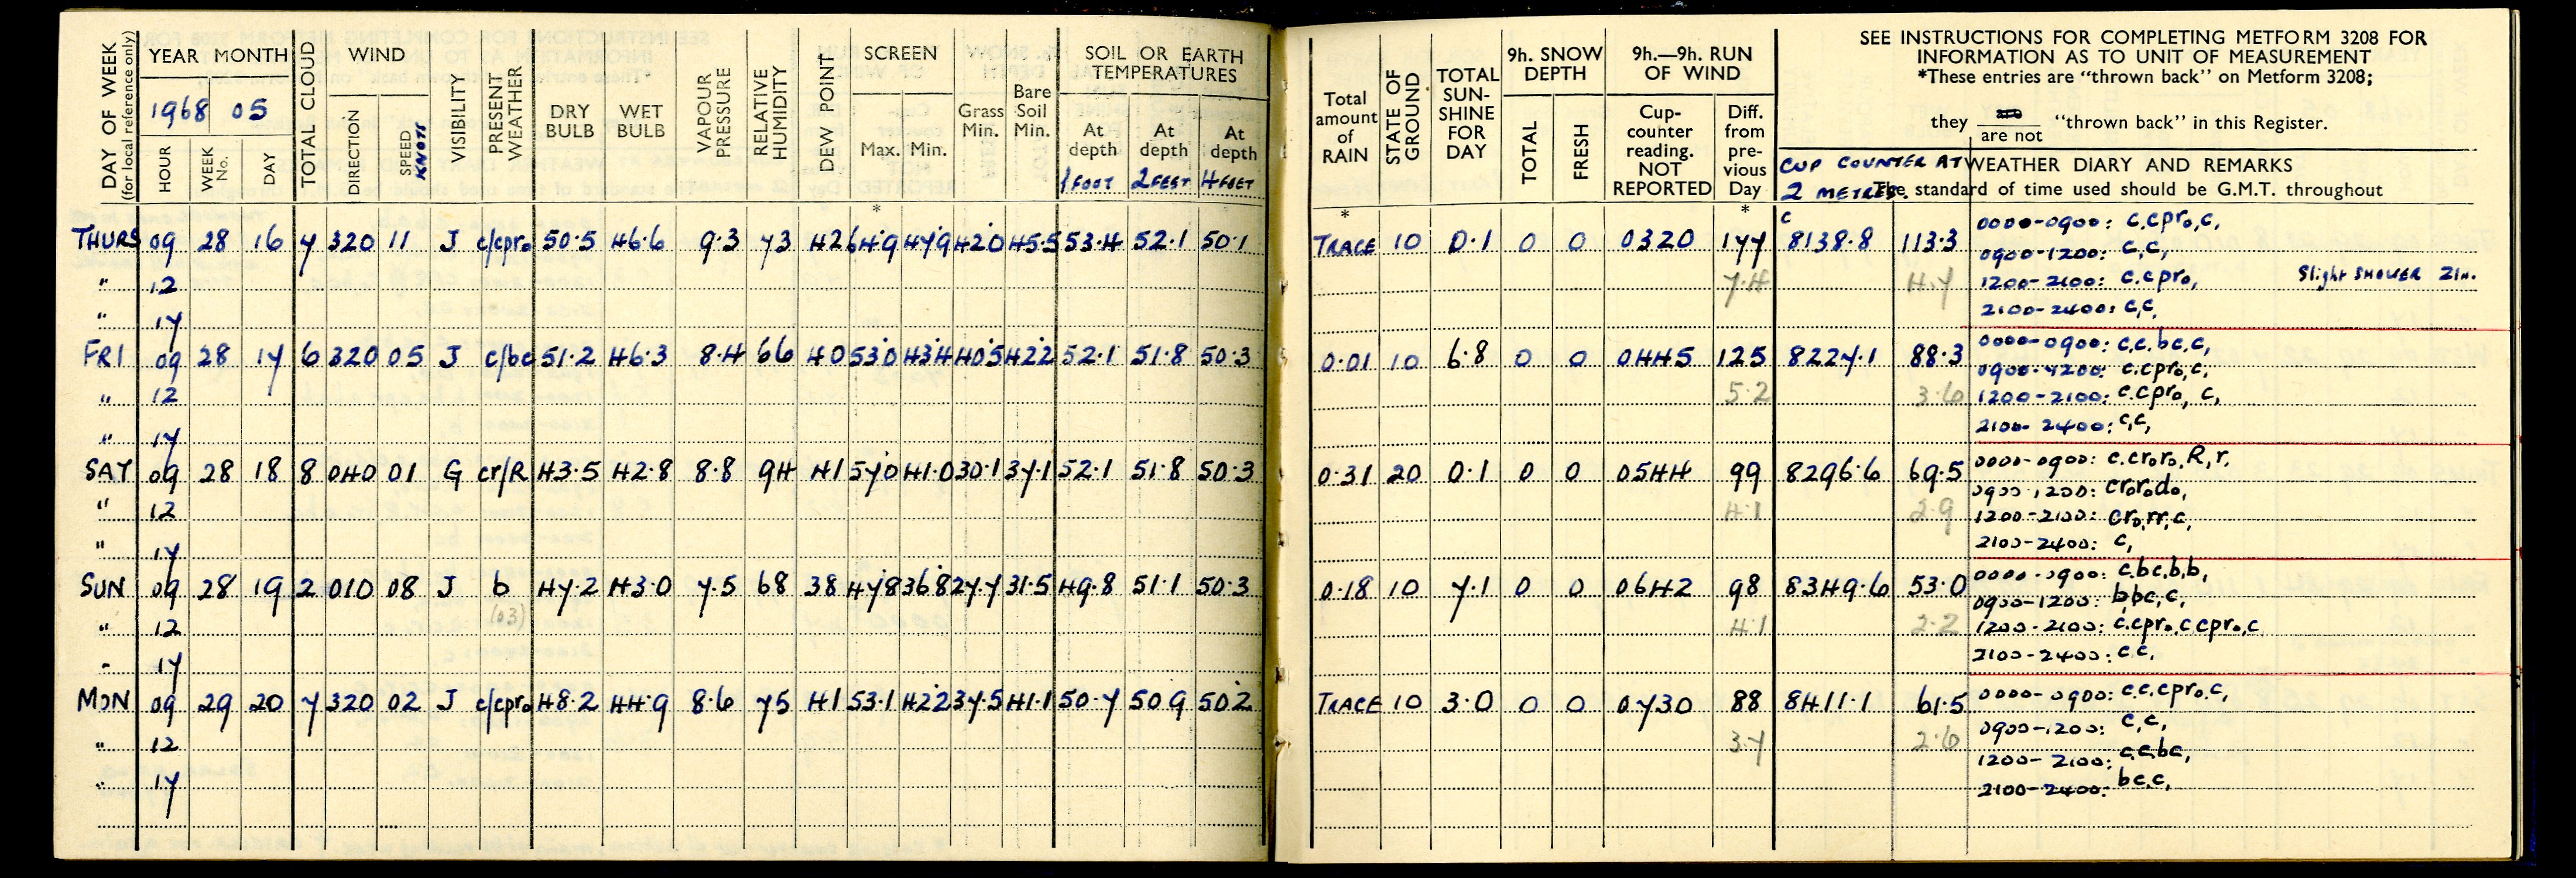 DAY OF WEEK
(for local reference only)
YEAR MONTH
1968 05
HOUR
WEEK No.
DAY
TOTAL CLOUD
WIND
DIRECTION
SPEED
KNOTS
VISIBILITY
PRESENT WEATHER
DRY BULB
WET BULB
VAPOUR PRESSURE
RELATIVE HUMIDITY
DEW POINT
SCREEN
Max. Min.
*
Grass Min.
Bare Soil Min.
SOIL OR EARTH
TEMPERATURES
At depth 1 FOOT
At depth 2 FEET
At depth 4 FEET
Total amount of RAIN
*
STATE OF GROUND
TOTAL SUN-SHINE FOR DAY
9h. SNOW DEPTH
TOTAL
FRESH
9h.—9h. RUN OF WIND
Cup-counter reading. NOT REPORTED
Diff. from pre-vious Day
*
SEE INSTRUCTIONS FOR COMPLETING METFORM 3208 FOR
INFORMATION AS TO UNIT OF MEASUREMENT
*These entries are "thrown back" on Metform 3208;
they are / are not "thrown back" in this Register.
CUP COUNTER AT
2 METRES.
WEATHER DIARY AND REMARKS
The standard of time used should be G.M.T. throughout
THURS 09 28 16 7 320 11 J c/cpr₀ 50.5 46.6 9.3 73 42 64.9 47.9 42.0 45.5 53.4 52.1 50.1 TRACE 10 0.1 0 0 0320 177 c 8138.8 113.3 0000-0900: c.cpr₀,c,
0900-1200: c,c,
" 12 7.4 4.7 1200-2100: c.cpr₀, Slight SHOWER 21h.
" 17 2100-2400: c,c,
FRI 09 28 17 6 320 05 J c/bc 51.2 46.3 8.4 66 40 53.0 43.4 40.5 42.2 52.1 51.8 50.3 0.01 10 6.8 0 0 0445 125 8227.1 88.3 0000-0900: c,c.bc,c,
0900-1200: c.cpr₀,c,
" 12 5.2 3.6 1200-2100: c.cpr₀, c,
" 17 2100-2400: c,c,
SAT 09 28 18 8 040 01 G cr/R 43.5 42.8 8.8 94 41 57.0 41.0 30.1 37.1 52.1 51.8 50.3 0.31 20 0.1 0 0 0544 99 8296.6 69.5 0000-0900: c.cr₀r₀,R,r,
0900-1200: cr₀r₀d₀,
" 12 4.1 2.9 1200-2100: cr₀,rr,c,
" 17 2100-2400: c,
SUN 09 28 19 2 010 08 J b 47.2 43.0 7.5 68 38 47.8 36.8 27.7 31.5 49.8 51.1 50.3 0.18 10 7.1 0 0 0642 98 8349.6 53.0 0000-0900: c,bc,b,b,
(03) 0900-1200: b,bc,c,
" 12 4.1 2.2 1200-2100: c.cpr₀.c.cpr₀,c
" 17 2100-2400: c.c,
MON 09 29 20 7 320 02 J c/cpr₀ 48.2 44.9 8.6 75 41 53.1 42.2 37.5 41.1 50.7 50.9 50.2 TRACE 10 3.0 0 0 0730 88 8411.1 61.5 0000-0900: c.c.cpr₀.c,
0900-1200: c,c,
" 12 3.7 2.6 1200-2100: c,c,bc,
" 17 2100-2400: bc,c,